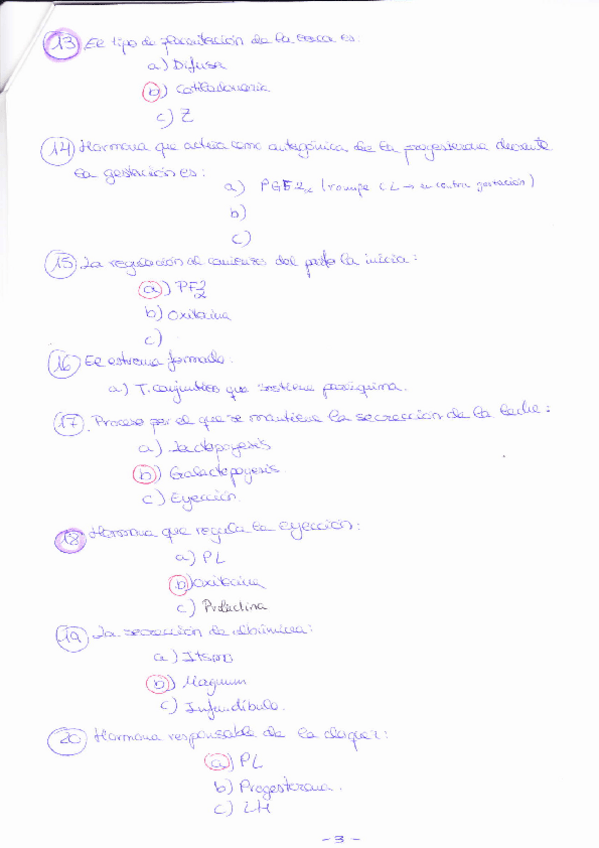 13 El tipo de placentación de la vaca es:
a) Difusa
b) Cotiledonaria
c) Z
14 Hormona que actúa como antagónica de la progesterona durante
la gestación es:
a) PGF2α (rompe CL → en contra gestación)
b)
c)
15 La regulación del comienzo del parto la inicia:
a) PF2α
b) Oxitocina
c)
16 El estroma formado:
a) T. conjuntivo que sostiene parénquima.
17. Proceso por el que se mantiene la secreción de la leche:
a) Lactopoyesis
b) Galactopoyesis
c) Eyección.
18 Hormona que regula la eyección:
a) PL
b) Oxitocina
c) Prolactina
19 La secreción de albúmina:
a) Itsmo
b) Magnum
c) Infundíbulo.
20 Hormona responsable de la cloquez:
a) PL
b) Progesterona.
c) LH
- 3 -